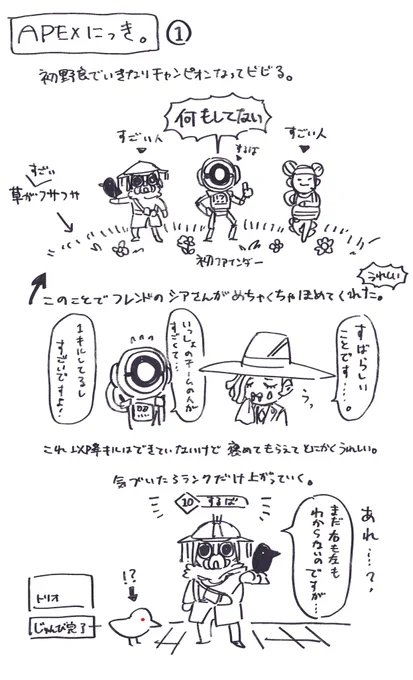 APEXにっき。①
初野良でいきなりチャンピオンなってビビる。
何もしてない
すごい人
するば
すごい人
すごい
草がフサフサ
初ファインダー
うれしい
このことでフレンドのシアさんがめちゃくちゃほめてくれた。
すばらしい
ことです…。
いっしょのチームの人が
すごくて…
1キルしてるし
すごいですよ!
褒めてもらえてとにかくうれしい。
気づいたらランクだけ上がっていく。
10 するば
あれ…?
まだ右も左も
わからないのですが…
!?
トリオ
じゅんび完了